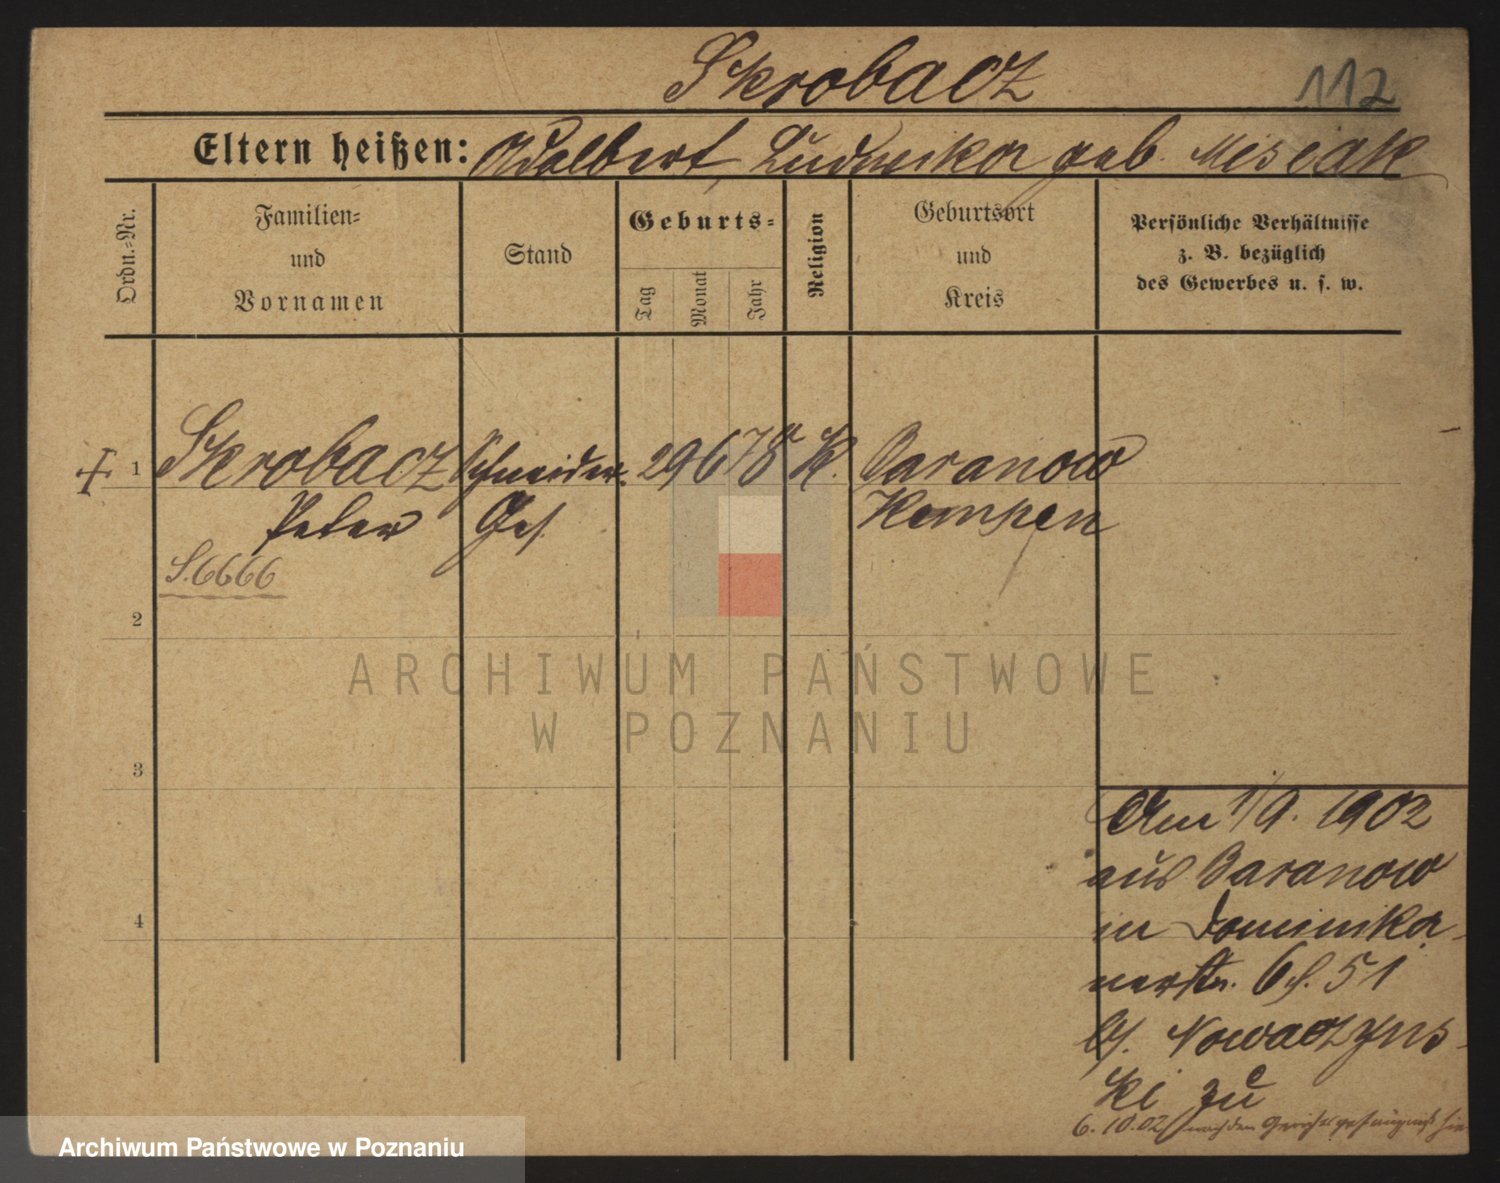 Skrobacz 112
Eltern heißen: Adalbert, Ludwika geb. Misiak
Ordn.=Nr.
Familien=
und
Vornamen
Stand
Geburts=
Tag
Monat
Jahr
Religion
Geburtsort
und
Kreis
Persönliche Verhältnisse
z. B. bezüglich
des Gewerbes u. s. w.
1 Skrobacz Schneider. 29 6 78 K. Baranow
Peter Ges. Kempen
S. 6666
2
3
4
ARCHIWUM PAŃSTWOWE
W POZNANIU
Am 1/9. 1902
aus Baranow
in Dominika-
nerstr. 6
b/. Nowaczyns-
ki zu
6.10.02 nach dem Gerichtsgefängniß hier
Archiwum Państwowe w Poznaniu